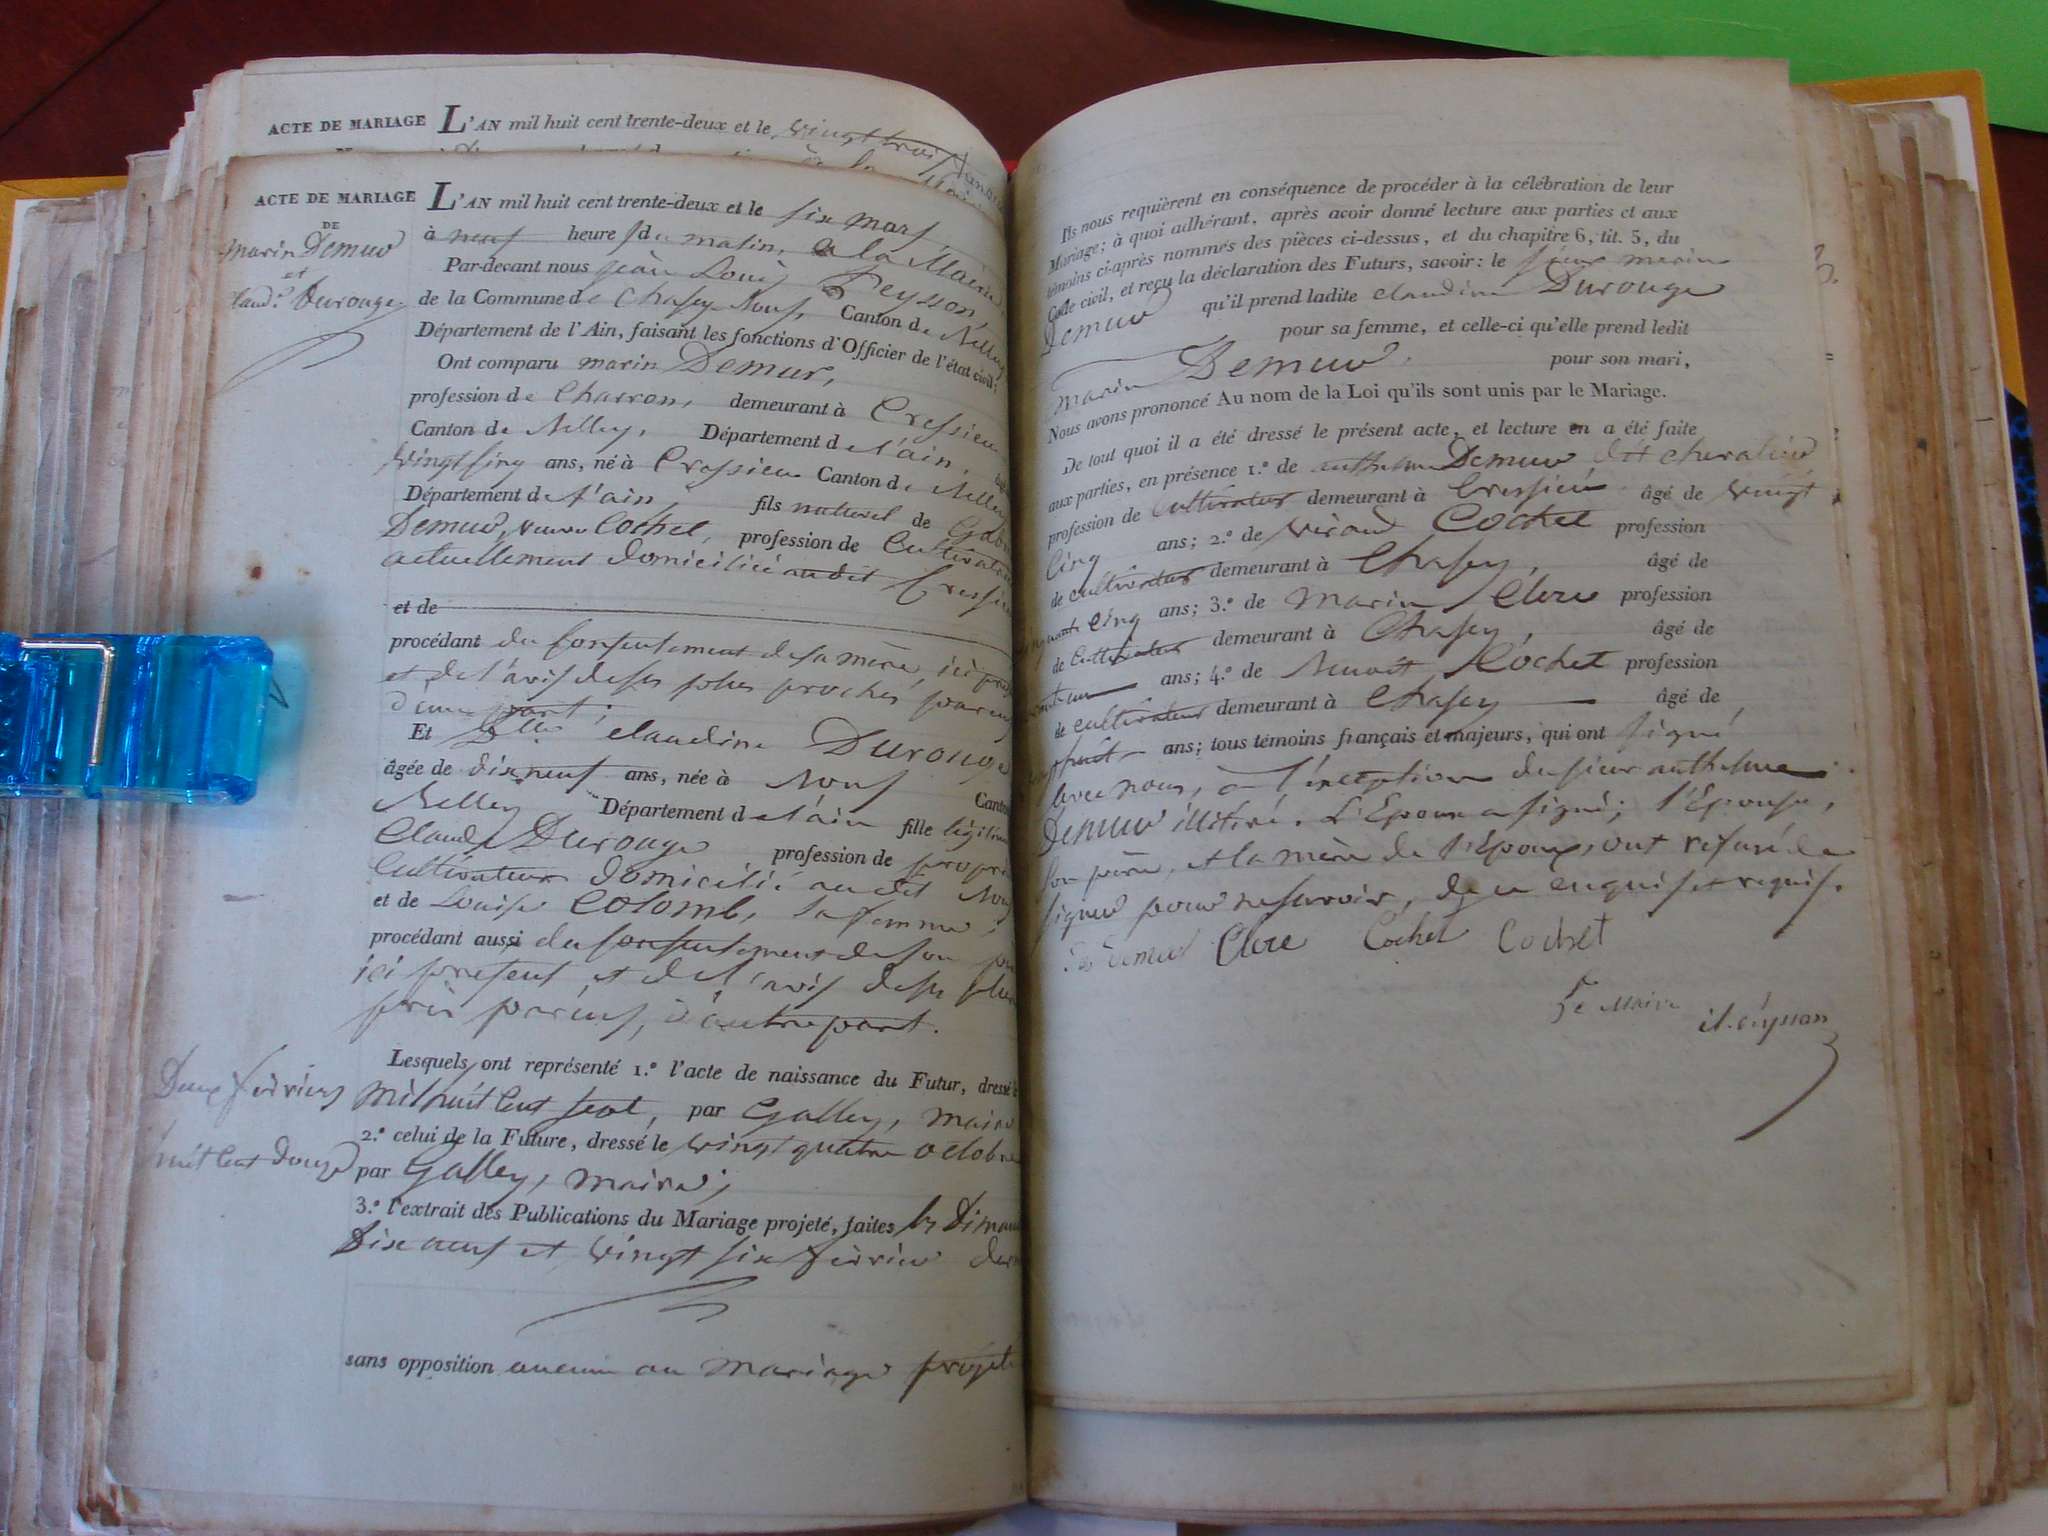 ACTE DE MARIAGE L'AN mil huit cent trente-deux et le vingt trois
ACTE DE MARIAGE L'AN mil huit cent trente-deux et le six mars
DE
à neuf heures du matin, a la Mairie
marin Demur
et
Par-devant nous jean Louis Peysson,
Claud.e Durouge
de la Commune de Chasey Nous, Canton de Belley
Département de l'Ain, faisant les fonctions d'Officier de l'état civil;
Ont comparu marin Demur,
profession de Charron, demeurant à Cressieu
Canton de Belley, Département de l'ain,
vingt cinq ans, né à Cressieu Canton de Belley
Département de l'ain, fils naturel de
Demur, veuve Cochet, profession de Cultivatrice
actuellement domiciliée audit Cressieu
et de
procédant du Consentement de sa mère, ici
et de l'avis de ses plus proches parens
d'une part;
Et Dlle claudine Durouge
âgée de dix neuf ans, née à Nous Canton
Belley Département de l'ain fille légitime
Claude Durouge profession de
Cultivateur domicilié au dit Nous
et de Louise Colomb, sa femme;
procédant aussi du Consentement de son
ici present et de l'avis de ses plus
près parens, d'autre part.
Lesquels ont représenté 1.º l'acte de naissance du Futur, dressé le
Deux février
mil huit cent sept, par Galley, maire
2.º celui de la Future, dressé le vingt quatre octobre
huit cent douze
par Galley, maire;
3.º l'extrait des Publications du Mariage projeté, faites les Dimanches
Dix neuf et vingt six février
sans opposition aucune au mariage projeté
Ils nous requièrent en conséquence de procéder à la célébration de leur
Mariage; à quoi adhérant, après avoir donné lecture aux parties et aux
témoins ci-après nommés des pièces ci-dessus, et du chapitre 6, tit. 5, du
Code civil, et reçu la déclaration des Futurs, savoir: le sieur marin
3.
Demur qu'il prend ladite claudine Durouge
pour sa femme, et celle-ci qu'elle prend ledit
marin Demur. pour son mari,
Nous avons prononcé Au nom de la Loi qu'ils sont unis par le Mariage.
De tout quoi il a été dressé le présent acte, et lecture en a été faite
aux parties, en présence 1.º de anthelme Demur, dit chevalier
profession de Cultivateur demeurant à Cressieu âgé de vingt
Cinq ans; 2.º de Cochet profession
de cultivateur demeurant à Chasey, âgé de
cinq ans; 3.º de Marin Clerc profession
de Cultivateur demeurant à Chasey, âgé de
ans; 4.º de Benoît Cochet profession
de cultivateur demeurant à Chasey âgé de
ans; tous témoins français et majeurs, qui ont signé
avec nous, à l'exception du sieur anthelme
Demur illitéré. L'Epoux a signé; l'Epouse,
son père, et la mère de l'Epoux, ont refusé de
signer pour ne savoir, de ce enquis et requis.
Demur Clerc Cochet Cochet
Le Maire